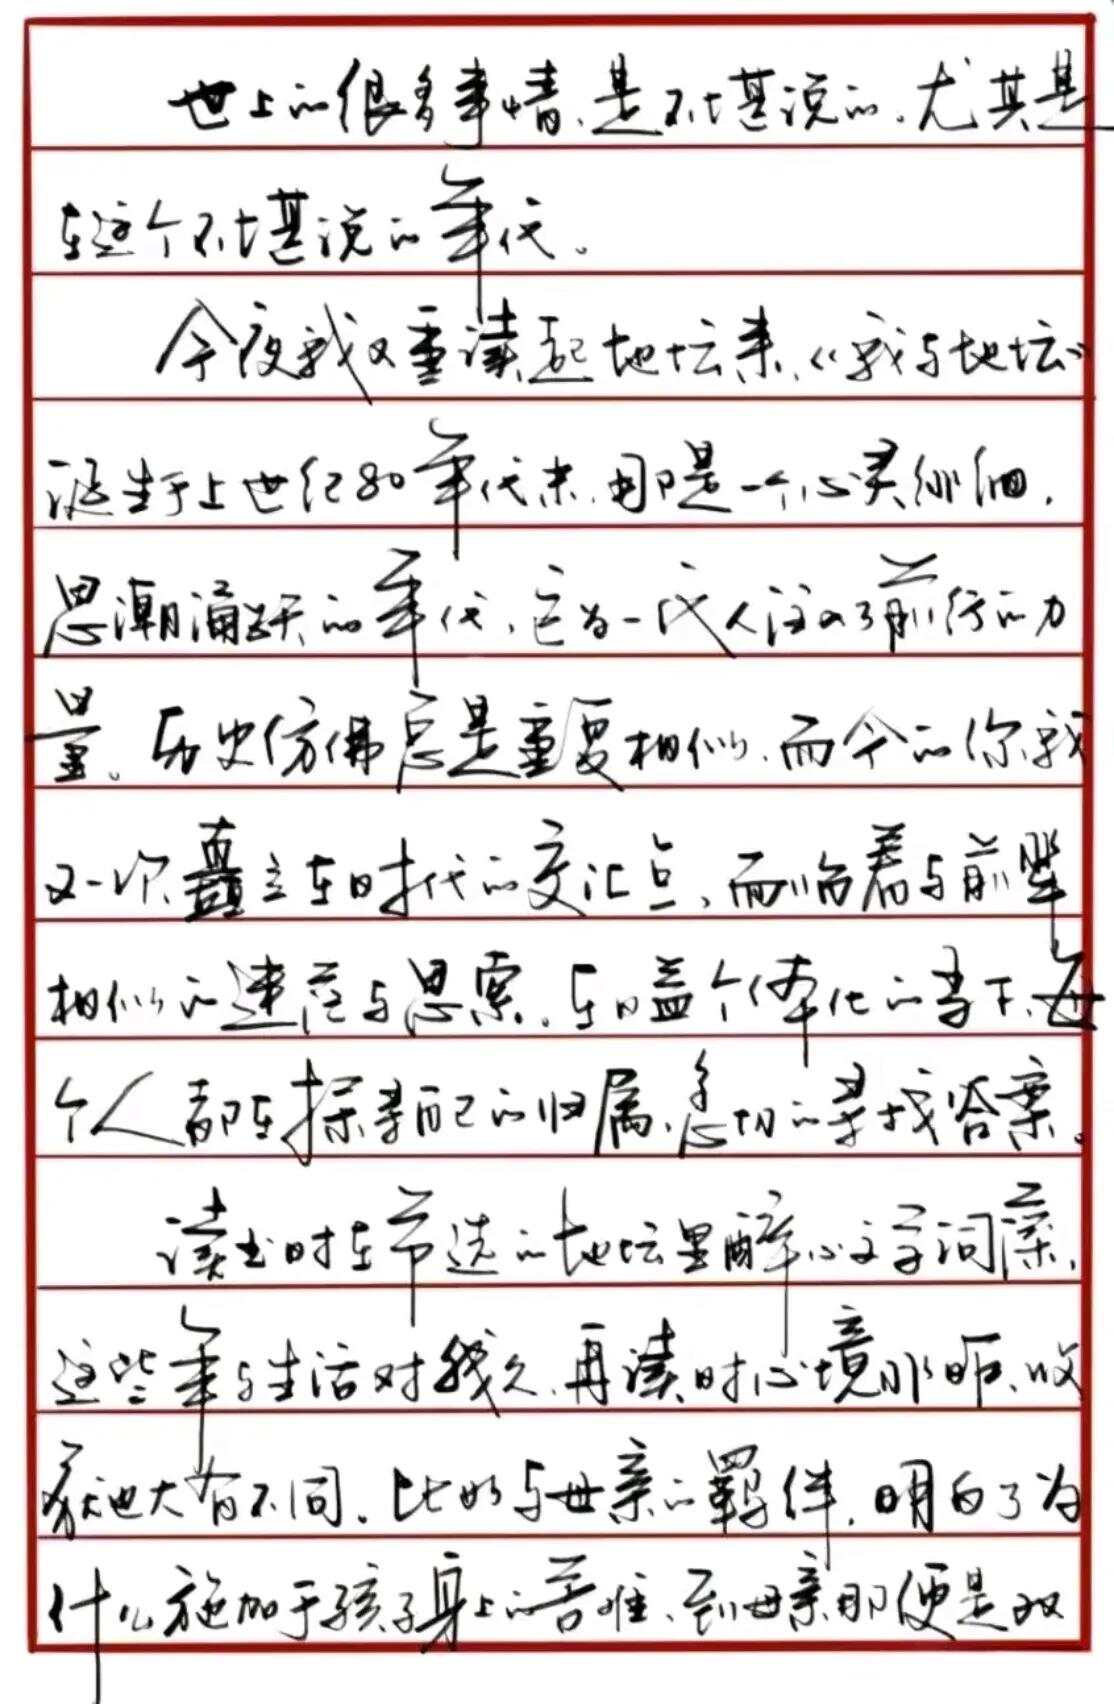 世上的很多事情、是不堪说的。尤其是
在这个不堪说的年代。
今夜我又重读起地坛来、《我与地坛》
诞生于上世纪80年代末、那是一个心灵徘徊,
思潮涌跃的年代、它为一代人注入了前行的力
量。历史仿佛总是重要相似、而今的你我
又一次矗立在时代的交汇点、面临着与前辈
相似的迷茫与思索、在日益个体化的当下、每
个人都在探寻自己的归属、急切的寻找答案。
读书时在节选的地坛里醉心文字词藻,
这些年与生活对线久、再读时心境非昨、收
获也大有不同。比如与母亲的羁绊、明白了为
什么施加于孩子身上的苦难、到母亲那便是双